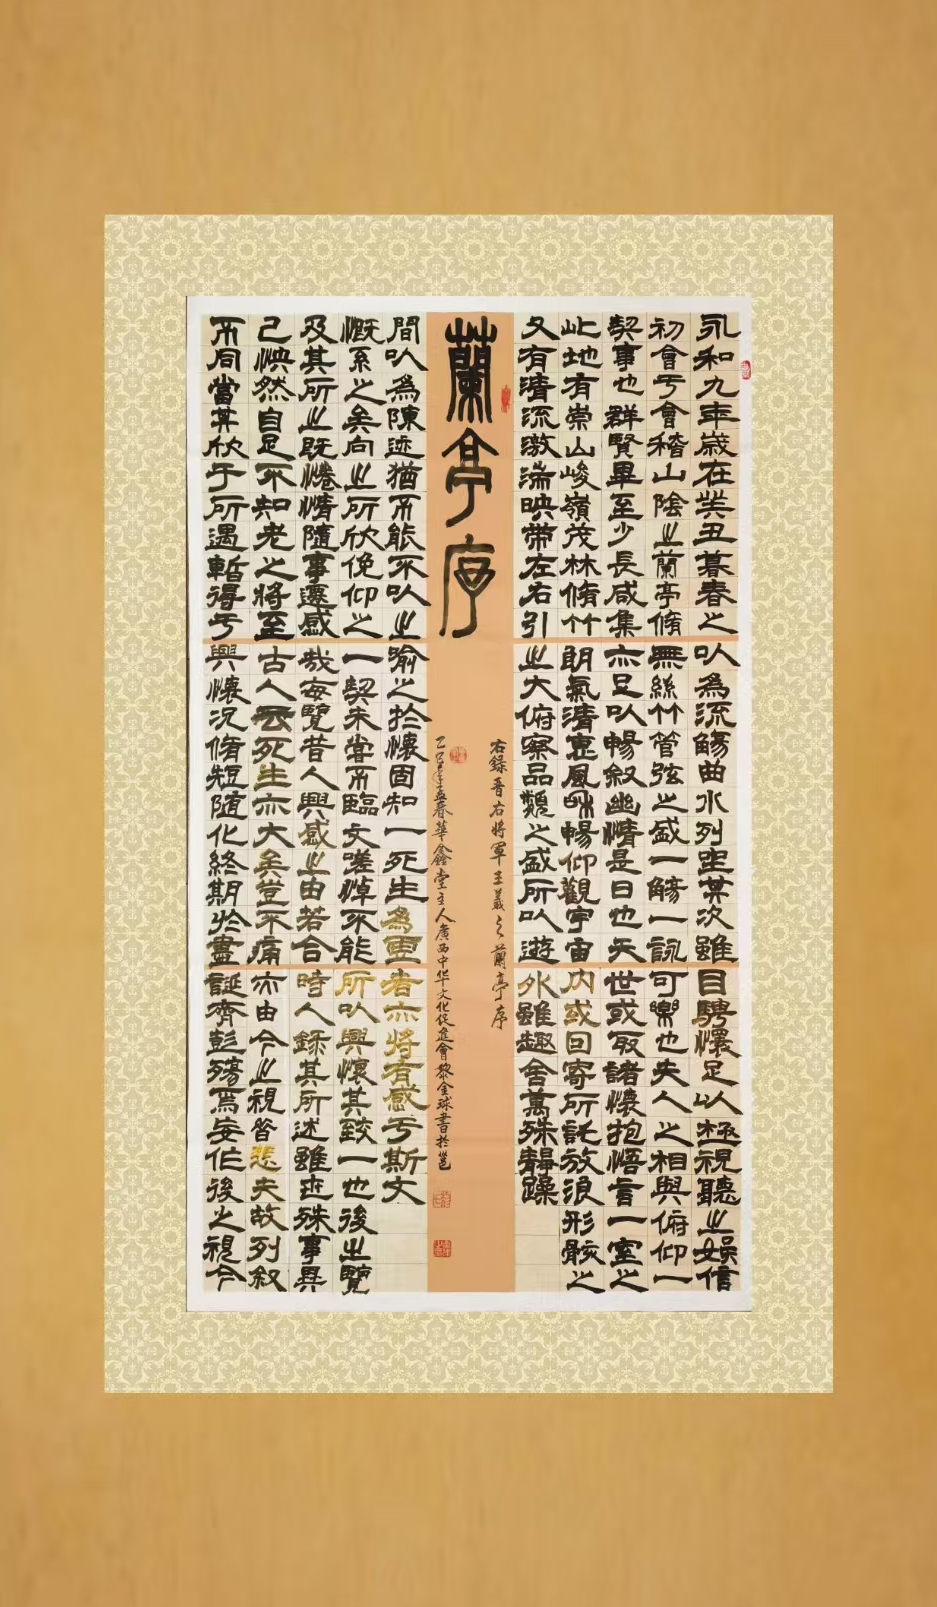 永和九年歲在癸丑暮春之
初會于會稽山陰之蘭亭脩
契事也群賢畢至少長咸集
此地有崇山峻嶺茂林脩竹
又有清流激湍映帶左右引
以為流觴曲水列坐其次雖
無絲竹管弦之盛一觴一詠
亦足以暢敘幽情是日也天
朗氣清惠風和暢仰觀宇宙
之大俯察品類之盛所以遊
目騁懷足以極視聽之娛信
可樂也夫人之相與俯仰一
世或取諸懷抱悟言一室之
内或因寄所託放浪形骸之
外雖趣舍萬殊靜躁
不同當其欣于所遇暫得于
己怏然自足不知老之將至
及其所之既惓情隨事遷感
慨系之矣向之所欣俛仰之
間以為陳迹猶不能不以之
興懷況脩短隨化終期於盡
古人云死生亦大矣豈不痛
哉每覽昔人興感之由若合
一契未嘗不臨文嗟悼不能
喻之於懷固知一死生為虛
誕齊彭殤為妄作後之視今
亦由今之視昔悲夫故列敘
時人錄其所述雖世殊事異
所以興懷其致一也後之覽
者亦將有感于斯文
蘭亭序
右錄晉右將軍王羲之蘭亭序
乙巳年孟春華鑫堂主人廣西中华文化促進會黎金球書於邕